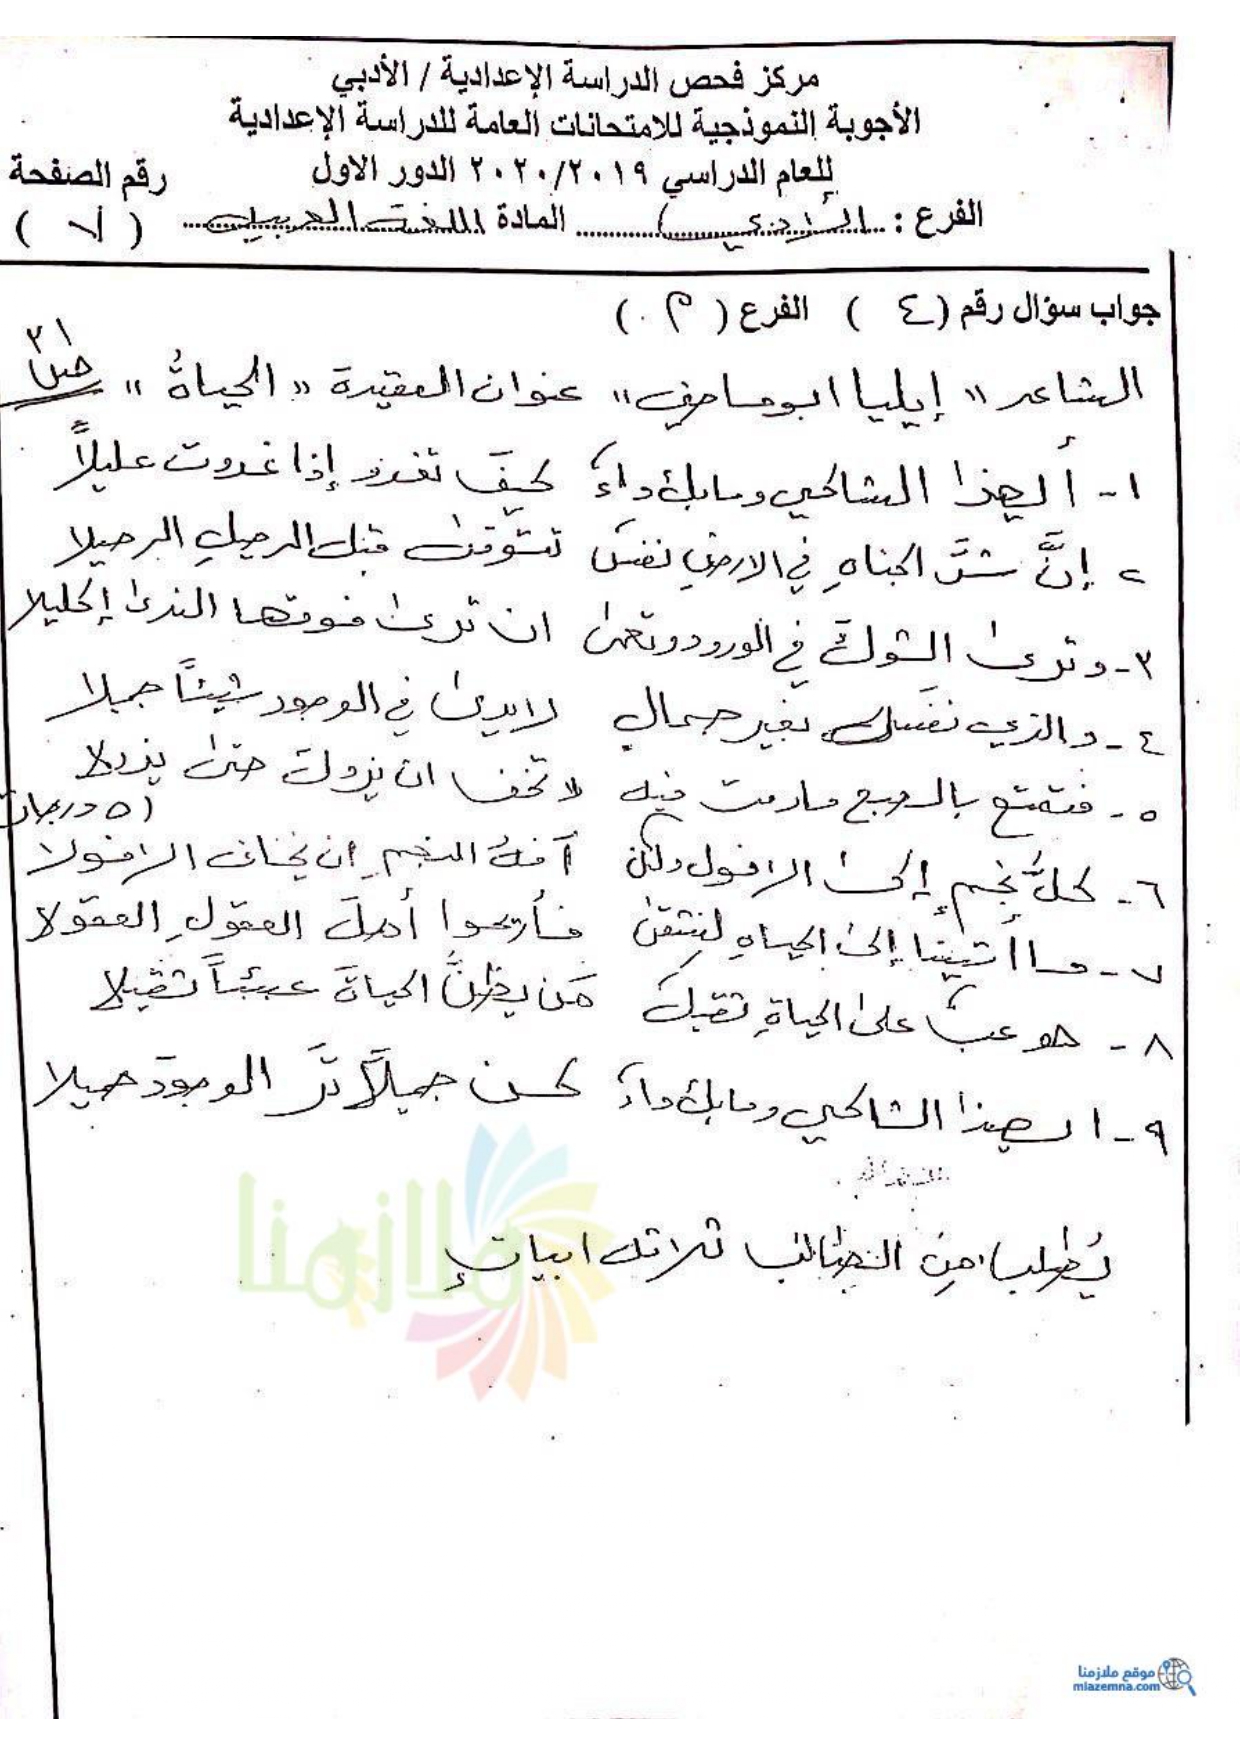 مركز فحص الدراسة الإعدادية / الأدبي
الأجوبة النموذجية للامتحانات العامة للدراسة الإعدادية
للعام الدراسي ٢٠١٩/٢٠٢٠ الدور الاول رقم الصفحة
الفرع : الأدبي المادة اللغة العربية ( ٧ )
جواب سؤال رقم ( ٤ ) الفرع ( )
الشاعر " إيليا ابو ماضي" عنوان القصيدة " الحياةُ " ص ٣١
١- أيهذا الشاكي وما بك داءٌ كيفَ تغدو إذا غدوت عليلاً
٢ إنَّ شرَّ الجناةِ في الارضِ نفسٌ تتوقى قبل الرحيلِ الرحيلا
٣- وترى الشوكَ في الورود وتعمى ان ترى فوقها الندى إكليلا
٤- والذي نفسُهُ بغير جمالٍ لا يرى في الوجود شيئاً جميلا
٥- فتمتع بالصبح مادمت فيه لا تخف ان يزول حتى يزولا
(٥ درجات
٦- كلُّ نجمٍ إلى الافول ولكن آفةُ النجمِ ان يخاف الافولا
٧- ما أتينا إلى الحياةِ لنشقى فأريحوا أهلَ العقولِ العقولا
٨- هو عبءٌ على الحياةِ ثقيلٌ مَن يظنُّ الحياةَ عبئاً ثقيلا
٩- ايهذا الشاكي وما بك داءٌ كن جميلاً ترَ الوجودَ جميلا
يُطلب من الطالب ثلاثة ابياتٍ
ملازمنا
موقع ملازمنا
mlazemna.com